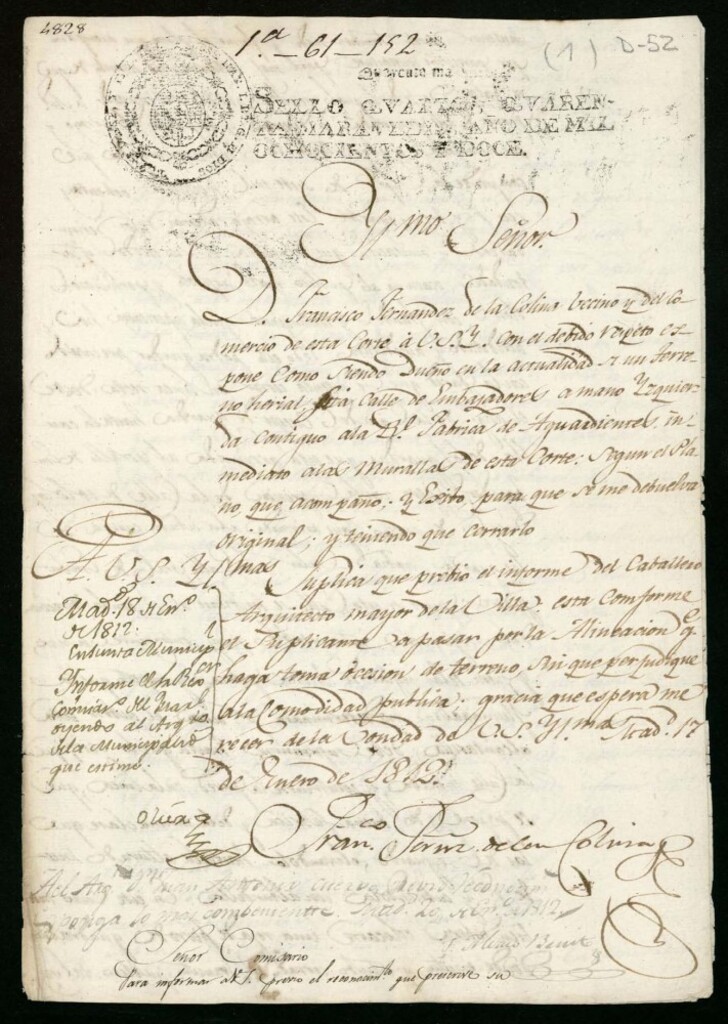 4828
1.ª_61_152
(1) D-52
Quarenta ma
SELLO QVARTO, QVAREN-
TA MARAVEDIS, AÑO DE MIL
OCHOCIENTOS Y DOCE.
Yllmo Señor.
D. Francisco Fernandez de la Colina vecino y del Co
mercio de esta Corte à V.S.Y. con el debido respeto ex
pone Como siendo Dueño en la actualidad de un Terre
no herial, Calle de Embajadores a mano Yzquier
da Contiguo ala Rl. Fabrica de Aguardientes, in
mediato alas Murallas de esta Corte: segun el Pla
no que acompaño; y Exsito, para que se me debuelva
original; y teniendo que Cerrarlo
A. V. S. Yllma
Suplica que prebio el informe del Caballero
Arquitecto mayor de la Villa; esta Comforme
el Suplicante a pasar por la Alineacion qe
haga toma ò ccsion de terreno, sin que perjudique
ala Comodidad publica; gracia que espera me
recer de la Vondad de V.S. Yllma Mad.d 17
de Enero de 1812.
Mad.d 18 de En.o
de 1812.
En Junta Municip.l
Informe el S.or Reg.or
Comisar.o del Quar.l
oyendo al Arq.to
de la Municipalidad
que estime.
Fran.co Fernz. de la Colina
Al Arq.to D.n Juan Antonio Cuervo
ponga lo mas combeniente. Mad.d 20 de En.o de 1812
Señor Comisario
Para informar a V.S. previo el reconocim.to que previene su